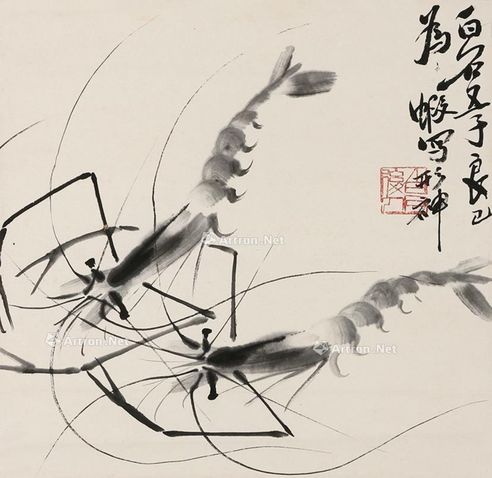 白石五子良已
为虾写形神
Artron.Net
Artron.Net
Artron.Net